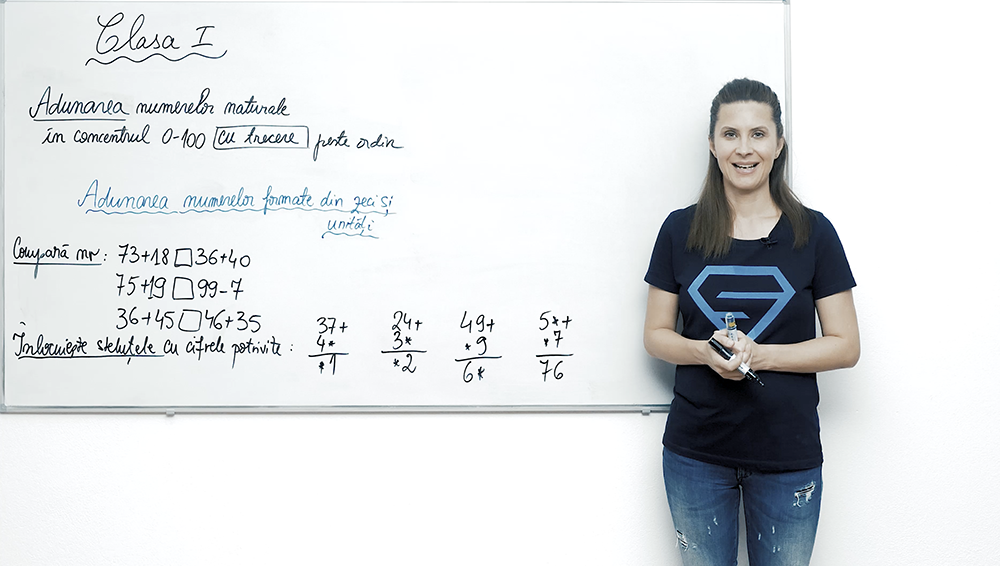 Clasa I
Adunarea numerelor naturale
în concentrul 0-100 cu trecere peste ordin
Adunarea numerelor formate din zeci și
unități
Compară nr: 73+18 □ 36+40
75+19 □ 99-7
36+45 □ 46+35
Înlocuiește steluțele cu cifrele potrivite:
37+ 24+ 49+ 5*+
4* 3* *9 *7
*1 *2 6* 76